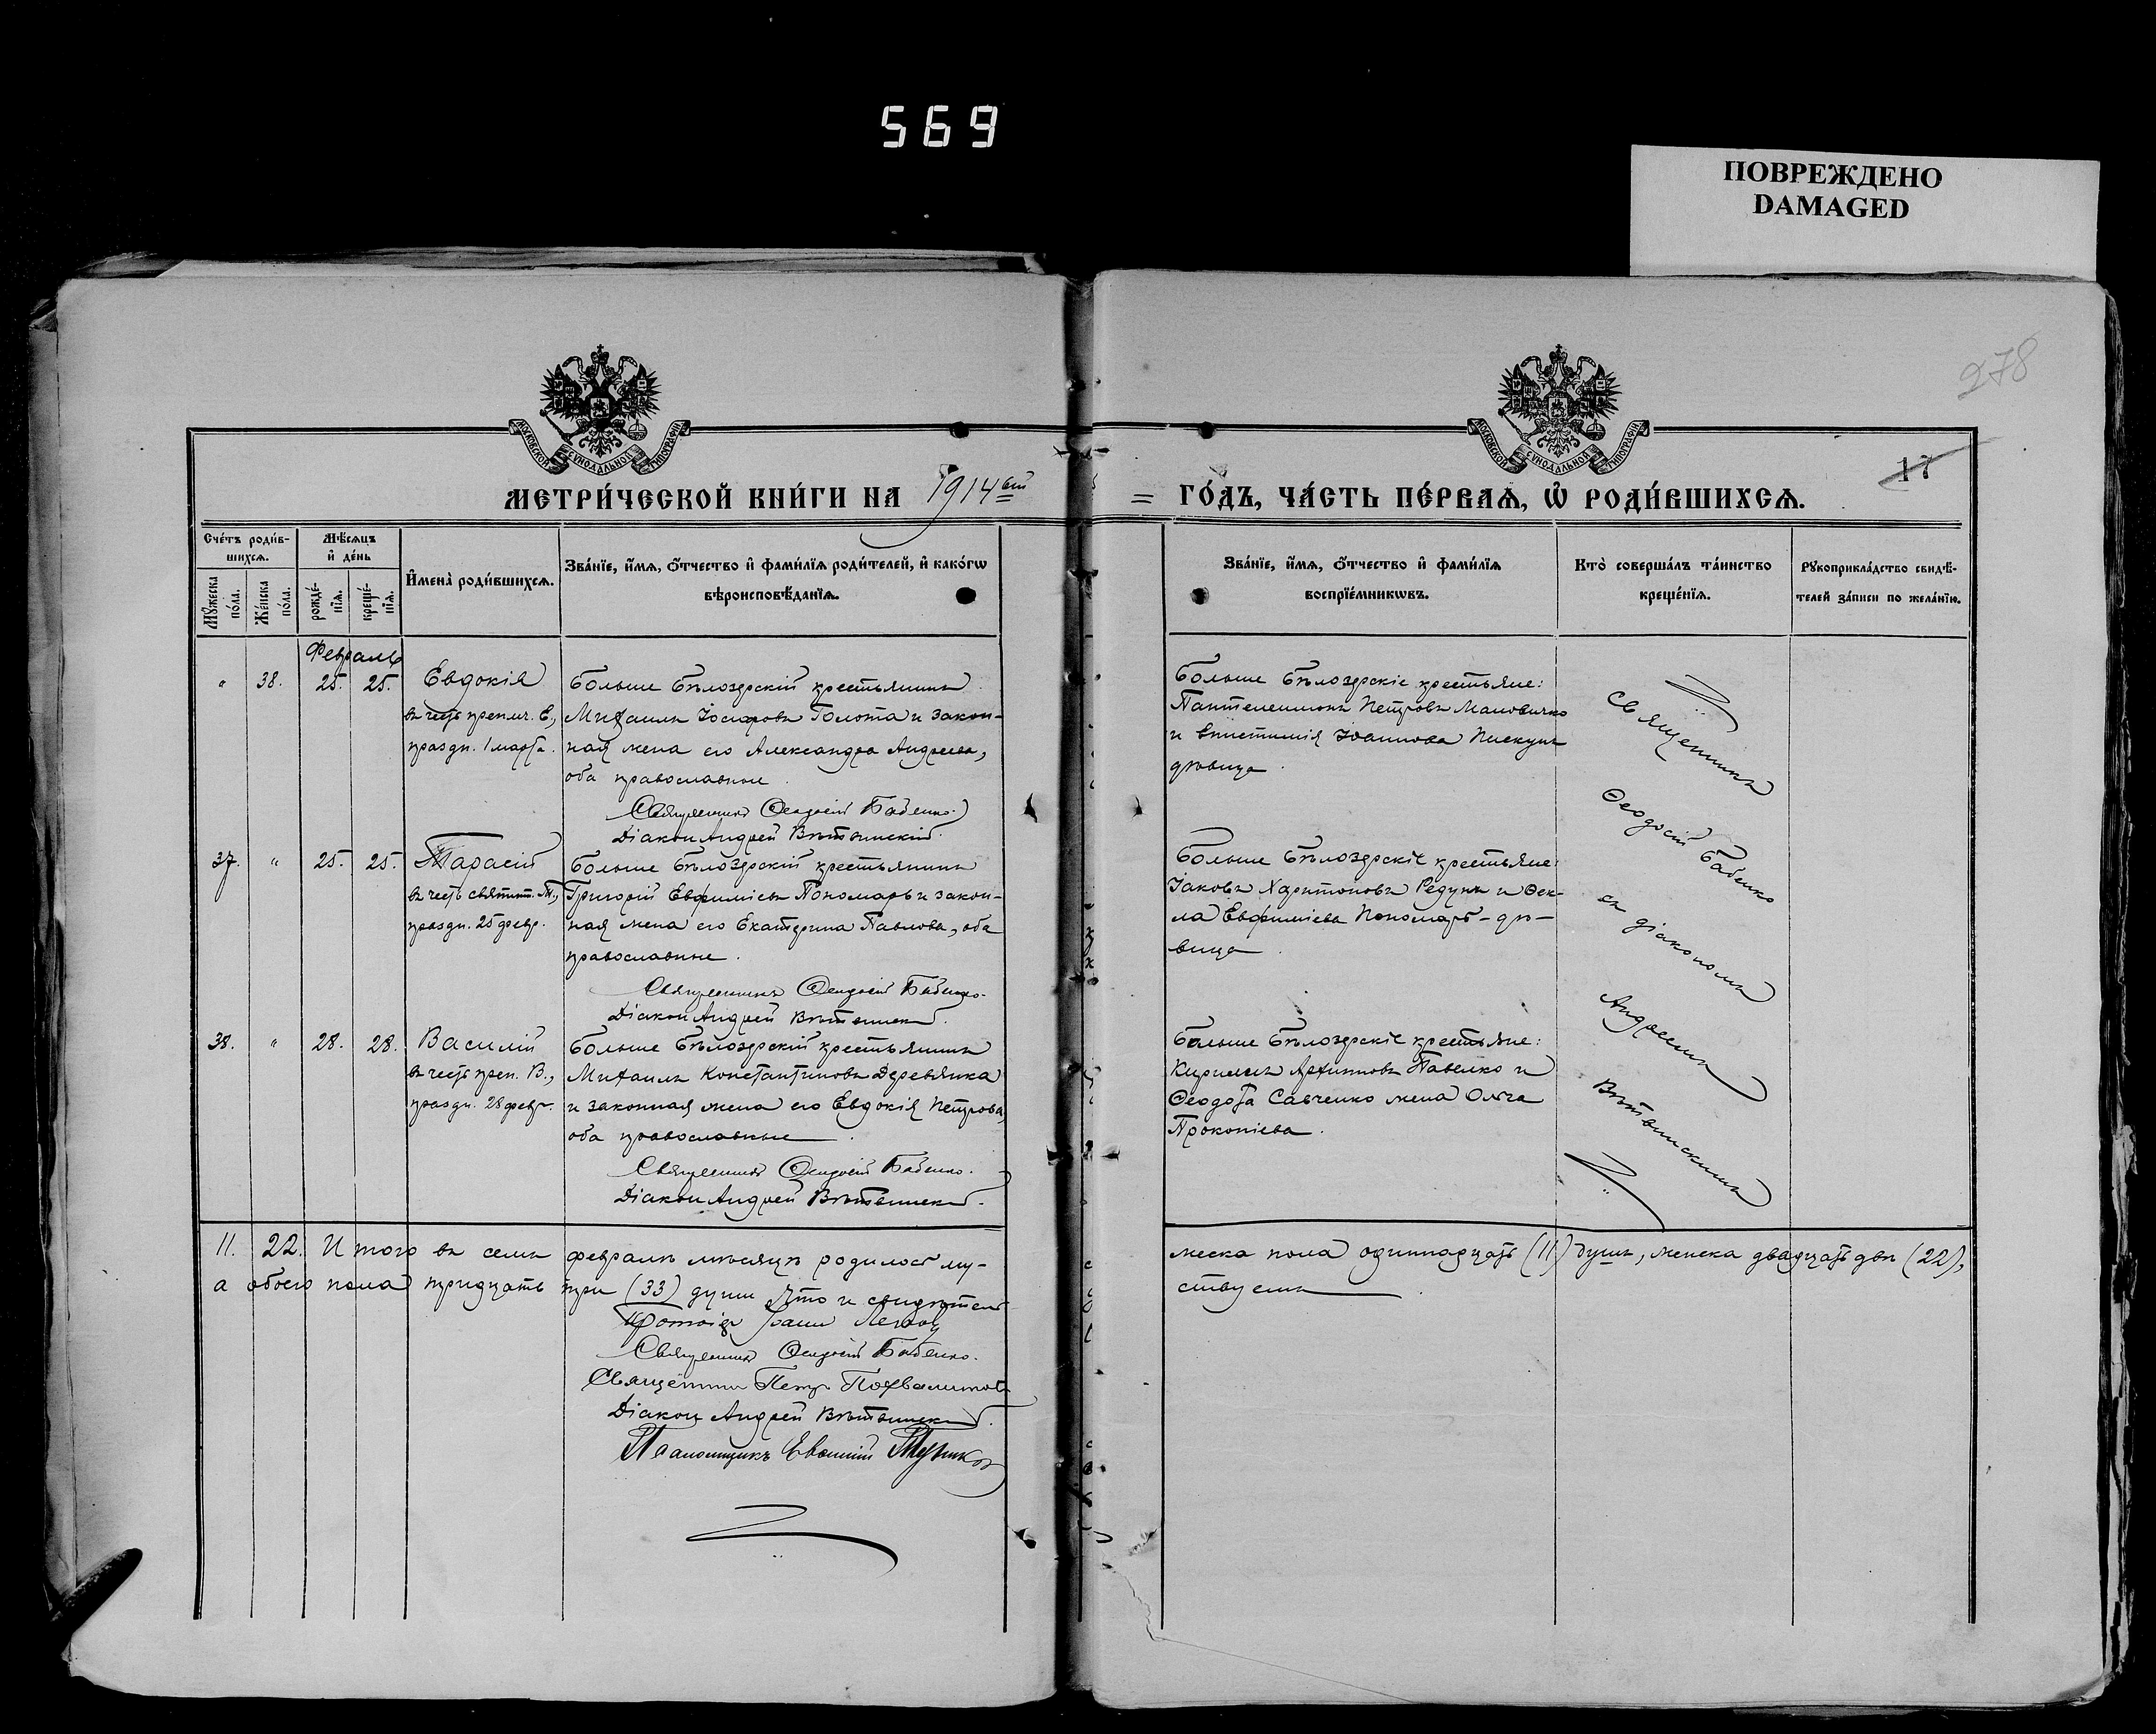 569
ПОВРЕЖДЕНО
DAMAGED
278
МОСКОВСКОЙ СѴНОДАЛЬНОЙ ТИПОГРАФІИ
МОСКОВСКОЙ СѴНОДАЛЬНОЙ ТИПОГРАФІИ
17
МЕТРИ́ЧЕСКОЙ КНИ́ГИ НА 1914ый = ГО́ДЪ, ЧА́СТЬ ПЕ́РВАѦ, Ѡ҆ РОДИ́ВШИХСѦ.
Сче́тъ роди́в-
шихсѧ.
Мꙋ́жеска по́ла.
Же́нска по́ла.
Мѣ́сѧцъ
и҆ де́нь
рожде́-
нїѧ.
креще́-
нїѧ.
И҆мена̀ роди́вшихсѧ.
Зва́нїе, и҆́мѧ, ѻ҆́тчество и҆ фами́лїѧ роди́телей, и҆ како́гѡ
вѣроисповѣ́данїѧ.
Зва́нїе, и҆́мѧ, ѻ҆́тчество и҆ фами́лїѧ
воспрїе́мникѡвъ.
Кто̀ соверша́лъ та́инство
креще́нїѧ.
Рꙋкоприкла́дство свидѣ́-
телей за́писи по жела́нїю.
Февраль
" 38. 25. 25. Евдокія
въ честь препмч. Е.,
праздн. 1 марта.
Больше Бѣлозерскій крестьянинъ
Михаилъ Іосифовъ Голота и закон-
ная жена его Александра Андреева,
оба православные.
Священникъ Ѳеодосій Бабенко.
Діаконъ Андрей Вѣтвинскій.
Больше Бѣлозерскіе крестьяне:
Пантелеимонъ Петровъ Маловичко
и Епистимія Іоаннова Пискунъ
дѣвица.
37. " 25. 25. Тарасій
въ честь святит. Т.,
праздн. 25 февр.
Больше Бѣлозерскій крестьянинъ
Григорій Евфиміевъ Пономарь и закон-
ная жена его Екатерина Павлова, оба
православные.
Священникъ Ѳеодосій Бабенко.
Діаконъ Андрей Вѣтвинскій.
Больше Бѣлозерскіе крестьяне:
Іаковъ Харитоновъ Редунъ и Ѳек-
ла Евфиміева Пономарь - дѣ-
вица.
38. " 28. 28. Василій
въ честь преп. В.,
праздн. 28 февр.
Больше Бѣлозерскій крестьянинъ
Михаилъ Константиновъ Деревянка
и законная жена его Евдокія Петрова,
оба православные.
Священникъ Ѳеодосій Бабенко.
Діаконъ Андрей Вѣтвинскій.
Больше Бѣлозерскіе крестьяне:
Кириллъ Архиповъ Павелко и
Ѳеодота Савченко жена Ольга
Прокопіева.
Священникъ
Ѳеодосій Бабенко
съ діакономъ
Андреемъ
Вѣтвинскимъ
11. 22. Итого въ семъ февралѣ мѣсяцѣ родилось му-
жеска пола одиннадцать (11) душъ, женска двадцать двѣ (22),
а обоего пола тридцать три (33) души. Что и свидѣтель-
ствуемъ.
Протоіер. Іоаннъ
Священникъ Ѳеодосій Бабенко.
Священникъ Петръ Похвалитовъ
Діаконъ Андрей Вѣтвинскій.
Псаломщикъ Евѳимій